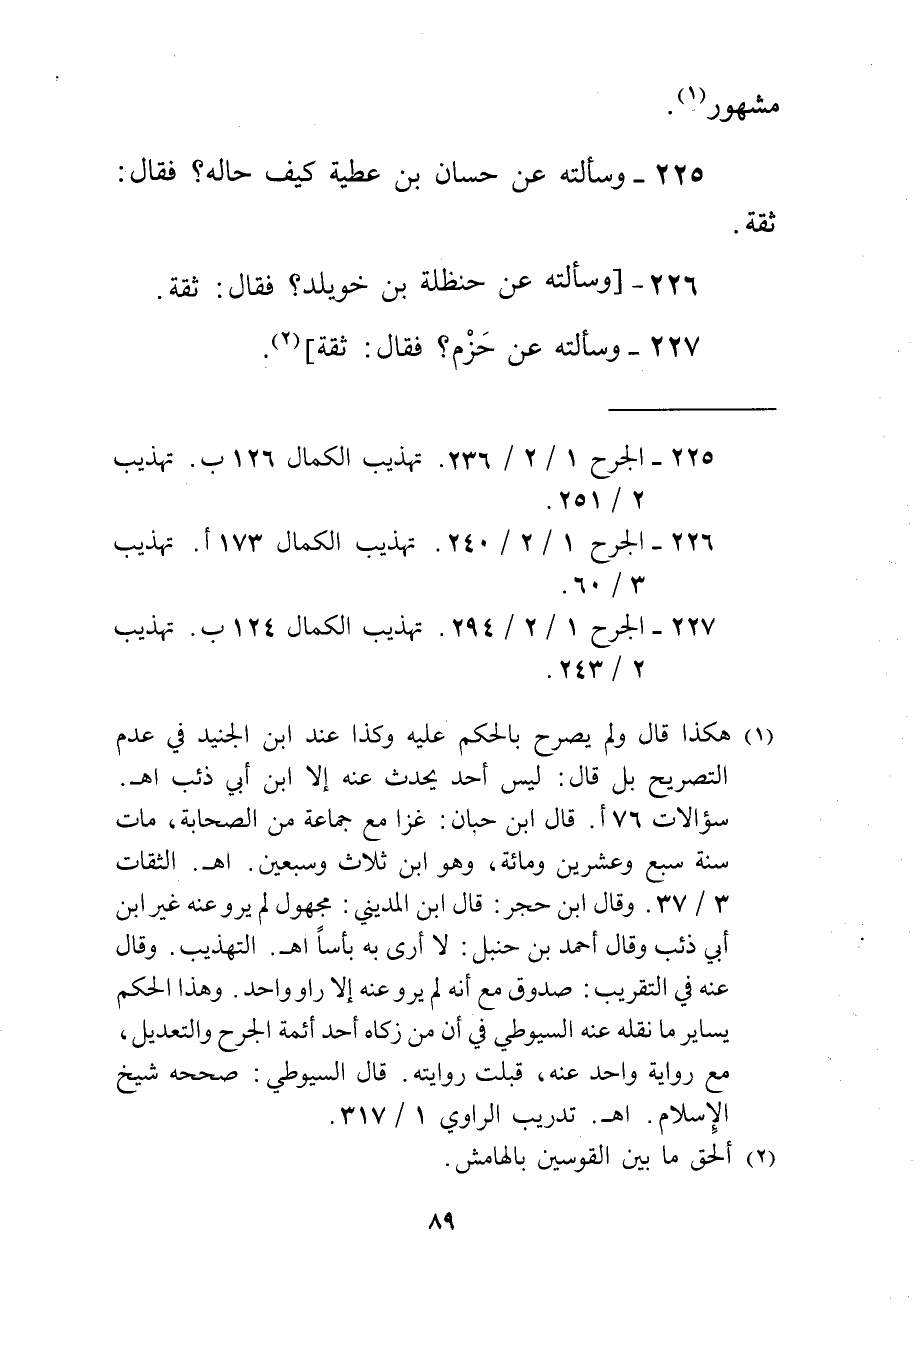 مشهور(١).
٢٢٥ ـ وسألته عن حسان بن عطية كيف حاله؟ فقال:
ثقة.
٢٢٦ ـ [وسألته عن حنظلة بن خويلد؟ فقال: ثقة.
٢٢٧ ـ وسألته عن حَزْم؟ فقال: ثقة](٢).
٢٢٥ ـ الجرح ١ / ٢ / ٢٣٦. تهذيب الكمال ١٢٦ ب. تهذيب
٢ / ٢٥١.
٢٢٦ ـ الجرح ١ / ٢ / ٢٤٠. تهذيب الكمال ١٧٣ أ. تهذيب
٣ / ٦٠.
٢٢٧ ـ الجرح ١ / ٢ / ٢٩٤. تهذيب الكمال ١٢٤ ب. تهذيب
٢ / ٢٤٣.
(١) هكذا قال ولم يصرح بالحكم عليه وكذا عند ابن الجنيد في عدم
التصريح بل قال: ليس أحد يحدث عنه إلا ابن أبي ذئب اهـ.
سؤالات ٧٦ أ. قال ابن حبان: غزا مع جماعة من الصحابة، مات
سنة سبع وعشرين ومائة، وهو ابن ثلاث وسبعين. اهـ. الثقات
٣ / ٣٧. وقال ابن حجر: قال ابن المديني: مجهول لم يرو عنه غير ابن
أبي ذئب وقال أحمد بن حنبل: لا أرى به بأساً اهـ. التهذيب. وقال
عنه في التقريب: صدوق مع أنه لم يرو عنه إلا راو واحد. وهذا الحكم
يساير ما نقله عنه السيوطي في أن من زكاه أحد أئمة الجرح والتعديل،
مع رواية واحد عنه، قبلت روايته. قال السيوطي: صححه شيخ
الإسلام. اهـ. تدريب الراوي ١ / ٣١٧.
(٢) ألحق ما بين القوسين بالهامش.
٨٩